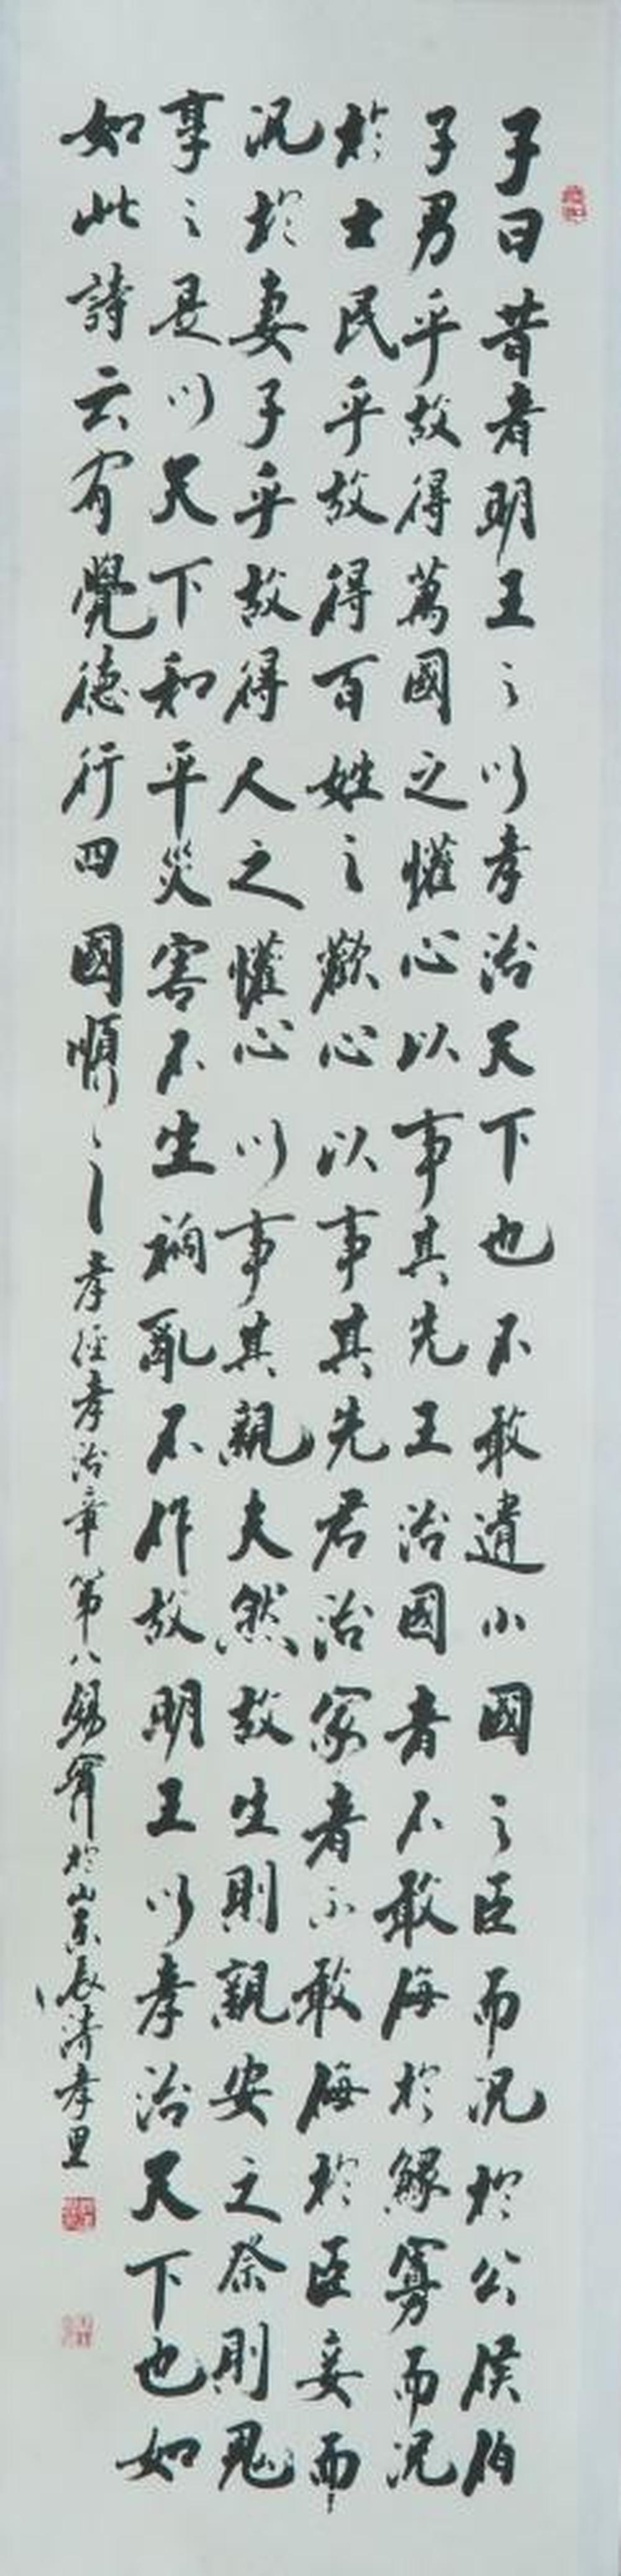 子曰昔者明王之以孝治天下也不敢遺小國之臣而況於公侯伯
子男乎故得萬國之懽心以事其先王治國者不敢侮於鰥寡而況
於士民乎故得百姓之歡心以事其先君治家者不敢侮於臣妾而
況於妻子乎故得人之懽心以事其親夫然故生則親安之祭則鬼
享之是以天下和平災害不生禍亂不作故明王以孝治天下也如
如此詩云有覺德行四國順之孝經孝治章第八錫寧於山東長清孝里